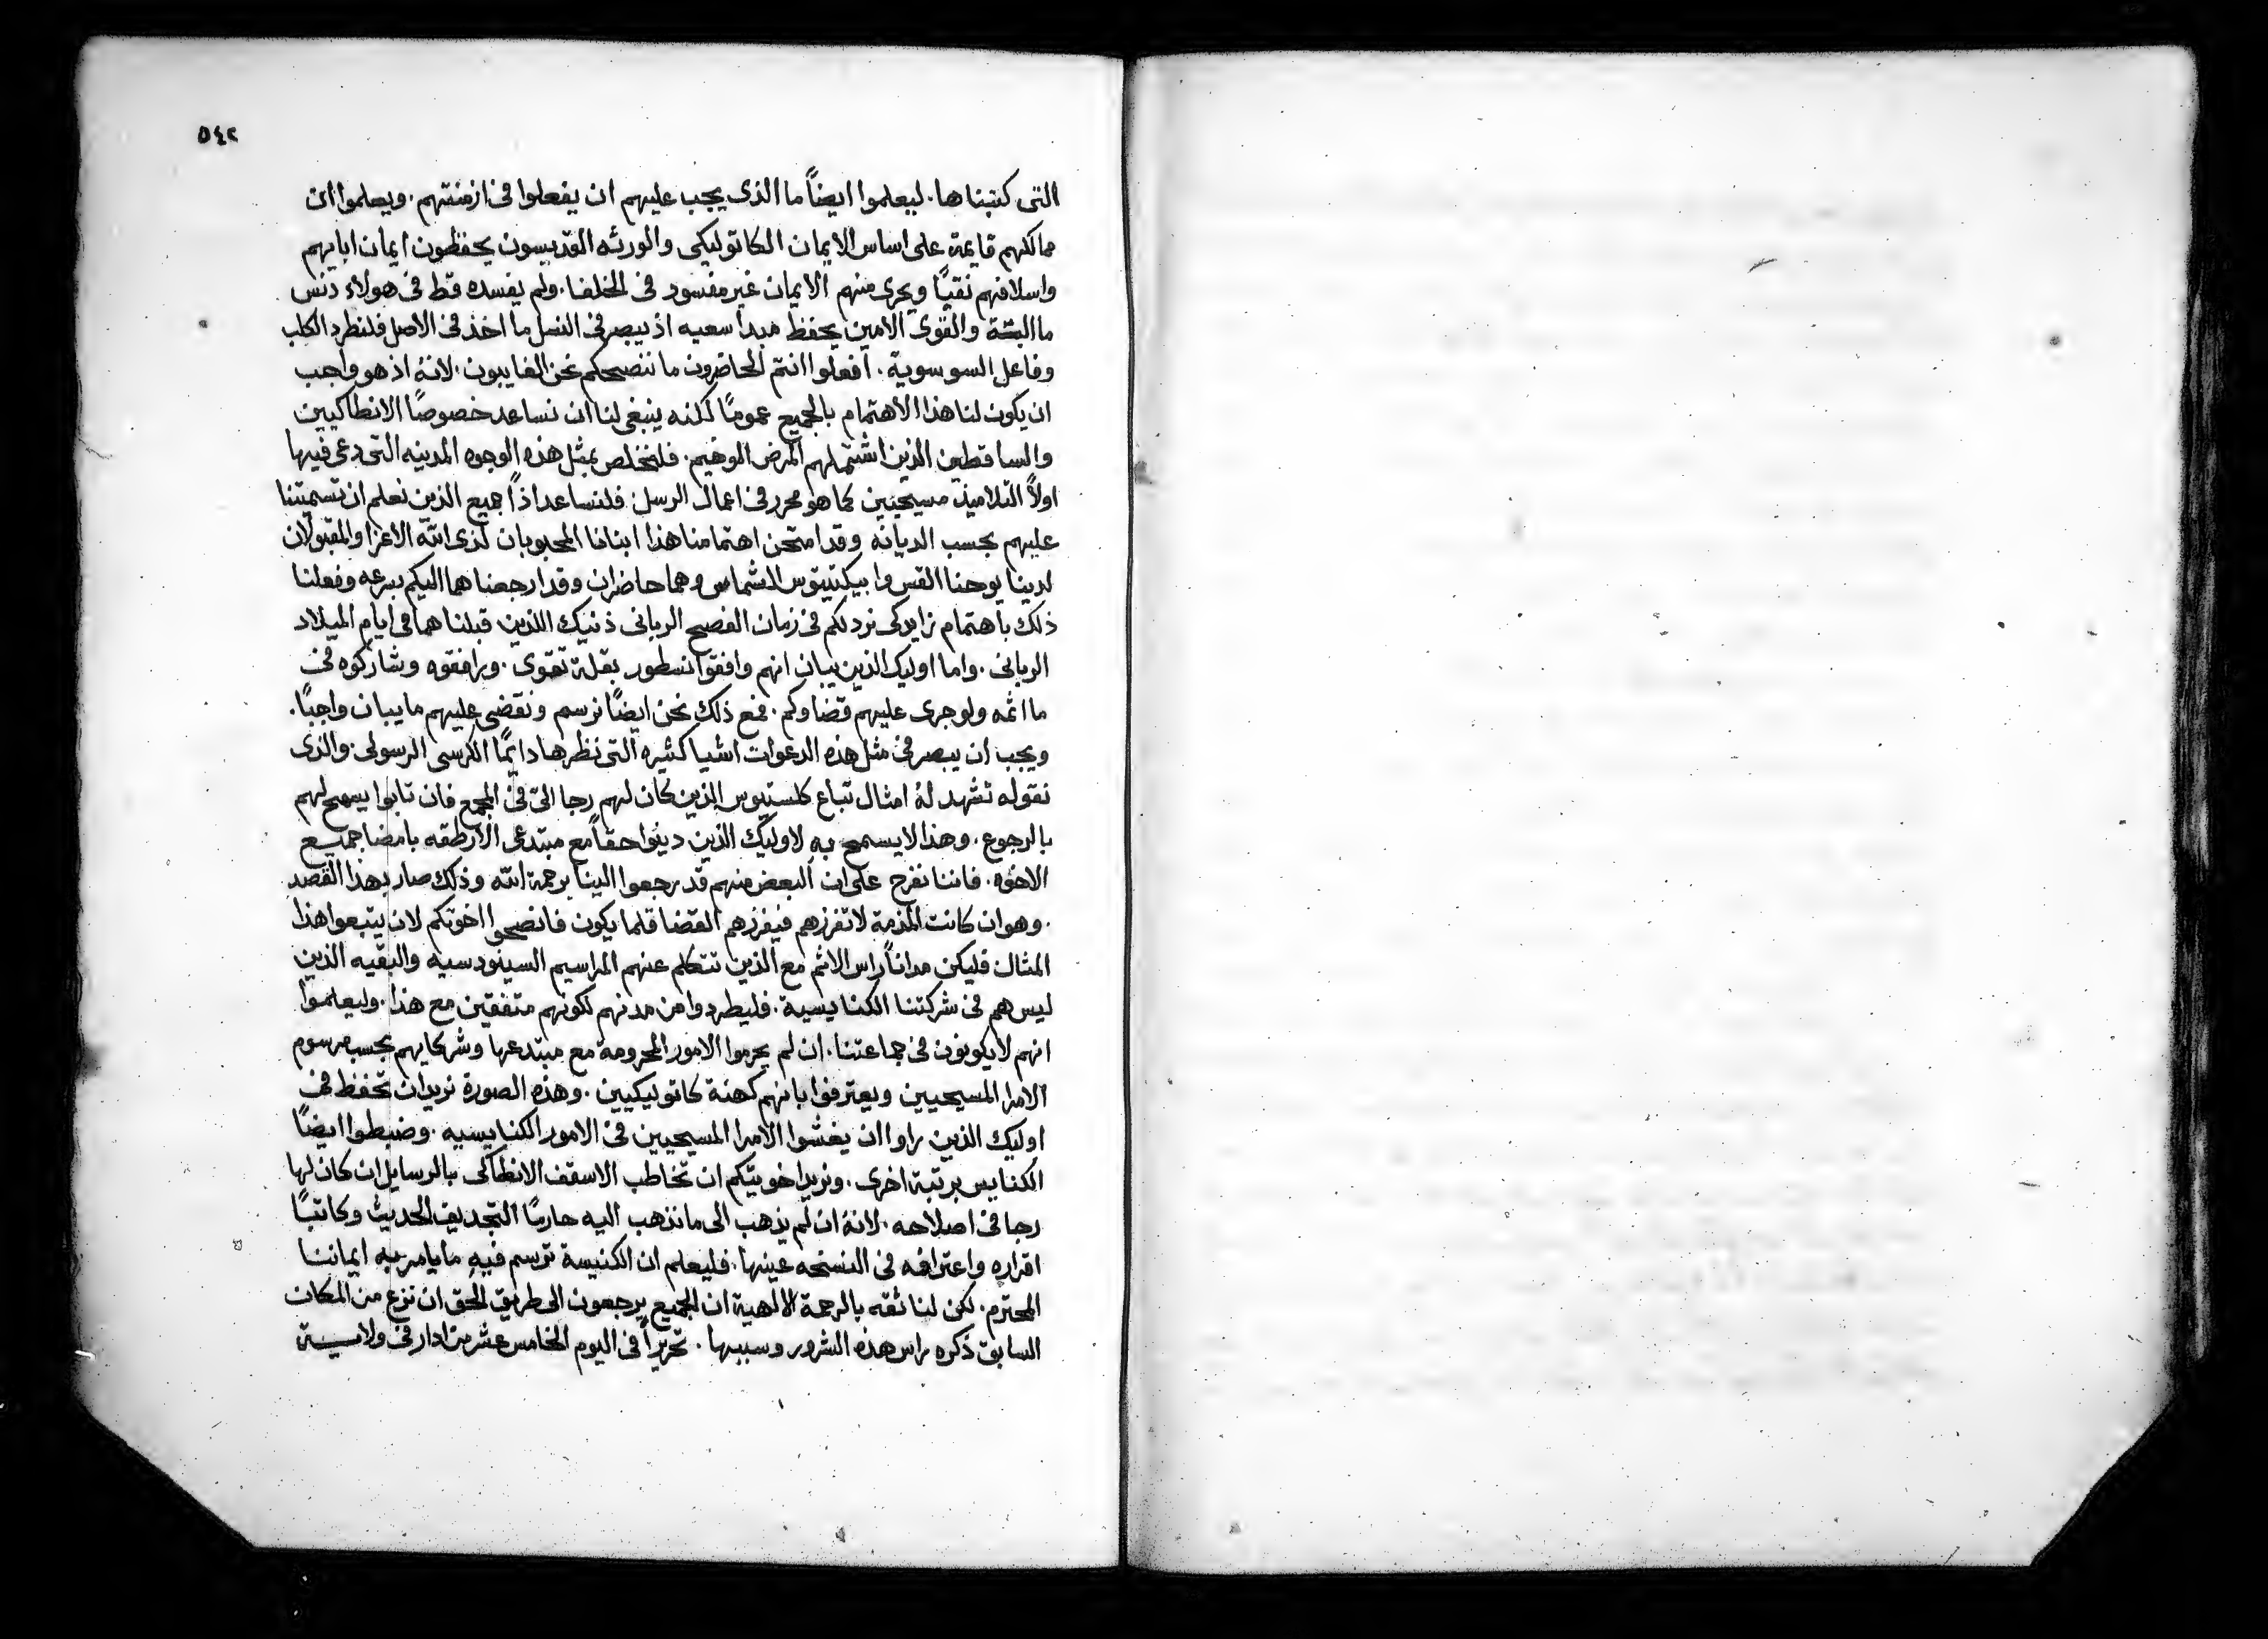 ٥٤٢
التى كتبناها. ليعلموا ايضاً ما الذى يجب عليهم ان يفعلوا فى ازمنتهم. ويعلموا ان
ممالكهم قايمة على اساس الايمان الكاتوليكى والورثه القديسون يحفظون ايمان ابايهم
واسلافهم نقيًا ويجرى منهم الايمان غير مفسود فى الخلفا. ولم يفسده قط فى هولاء دنس
ما البتة والقوى الامين يحفظ مبدا سعيه اذ يبصر فى النسل ما اخذ فى الاصل فلنطرد الكلب
وفاعل السو سوية. افعلوا انتم الحاضرون ما ننصحكم نحن الغايبون. لانهُ اذ هو واجب
ان يكون لنا هذا الاهتمام بالجميع عمومًا لكنه ينبغى لنا ان نساعد خصوصًا الانطاكيين
والساقطين الذين اشتملهم المرض الوخيم. فلنخلص بمثل هذه الوجوه المدينه التى دعى فيها
اولاً التلاميذ مسيحيين كما هو محرر فى اعمال الرسل فلنساعد اذاً جميع الذين نعلم ان تسميتنا
عليهم بحسب الديانه وقد امتحن اهتمامنا هذا ابنانا المحبوبان لذى الله الاعزا والمقبولان
لدينا يوحنا القس وابيكتيتوس الشماس وهما حاضران وقد ارجعناهما اليكم بسرعه وفعلنا
ذلك باهتمام زايد كى نرد لكم فى زمان الفصح الربانى ذنيك اللذين قبلناهما فى ايام الميلاد
الربانى. واما اوليك الذين يبان انهم وافقوا نسطور بقلة تقوى. ورافقوه وشاركوه فى
مااثمه ولو جرى عليهم قضاوكم. فمع ذلك نحن ايضًا نرسم ونقضى عليهم ما يبان واجبًا.
ويجب ان يبصر فى مثل هذه الدعوات اشيا كثيره التى نظرها دايمًا الكرسى الرسولى. والذى
نقوله تشهد لهُ امثال تباع كلستيوس الذين كان لهم رجا الى فى المجمع فان تابوا يسمح لهم
بالرجوع. وهذا لا يسمح به لاوليك الذين دينوا حقاً مع مبتدعى الارطقه بامضا جميع
الاخوه. فاننا نفرح على ان البعض منهم قد رجعوا الينا برحمة الله وذلك صار بهذا القصد
. وهو ان كانت المذمة لا تفرزهم فيفرزهم القضا قلما يكون فانصحوا اخوتكم لان يتبعوا هذا
المثال فليكن مداناً راس الاثم مع الذين تتكلم عنهم المراسيم السينودسيه والبقيه الذين
ليس هم فى شركتنا الكنايسية. فليطردوا من مدنهم لكونهم متفقين مع هذا. وليعلموا
انهم لا يكونون فى جماعتنا. ان لم يحرموا الامور المحرومة مع مبتدعها وشركايهم بحسب مرسوم
الامرا المسيحيين ويعترفوا بانهم كهنة كاتوليكيين. وهذه الصورة نريد ان تحفظ فى
اوليك الذين راوا ان يغشوا الامرا المسيحيين فى الامور الكنايسيه. وضبطوا ايضًا
الكنايس برتبة اخرى. ونريد اخويتكم ان تخاطب الاسقف الانطاكى بالرسايل ان كان لها
رجا فى اصلاحه. لانهُ ان لم يذهب الى ما نذهب اليه حارمًا التجديف الحديث وكاتبًا
اقراره واعترافه فى النسخه عينها. فليعلم ان الكنيسة ترسم فيه ما يامر به ايماننا
المحترم. لكن لنا ثقه بالرحمة الالهية ان الجميع يرجعون الى طريق الحق ان نزع من المكان
السابق ذكره راس هذه الشرور وسببها. تحريراً فى اليوم الخامس عشر من ادار فى ولاية